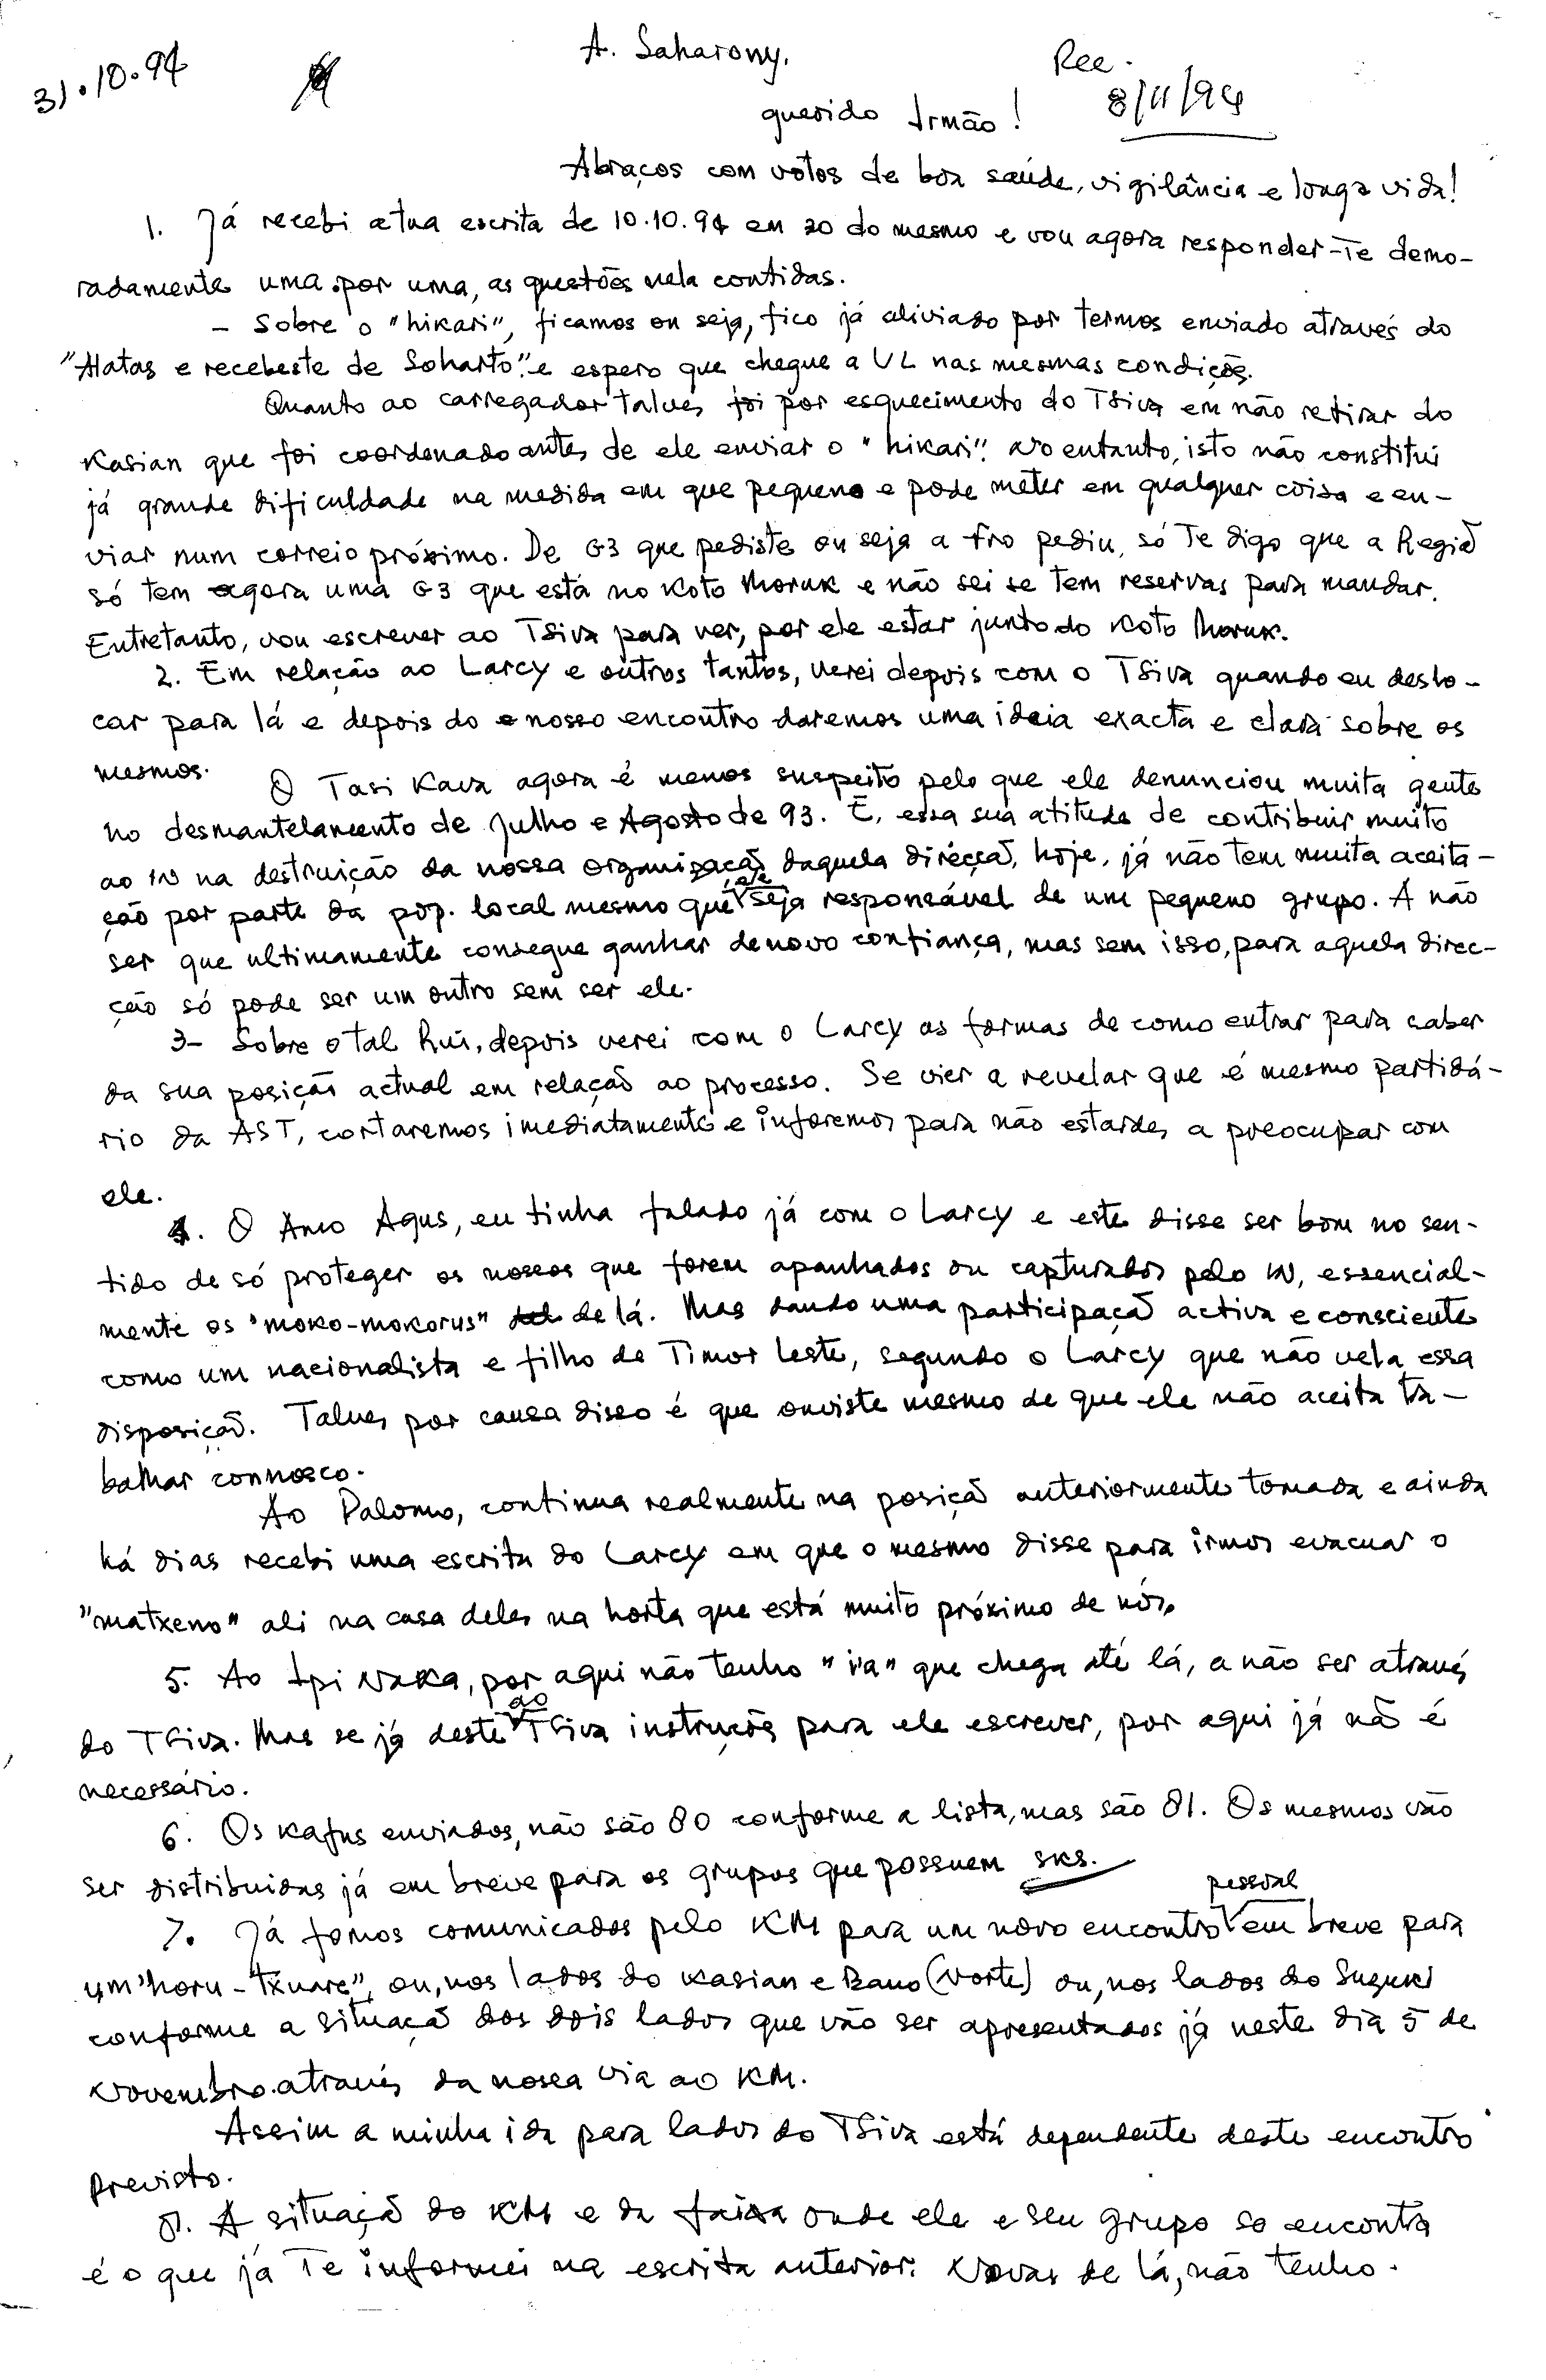 31.10.94
A. Saharony,
Rec.
8/11/94
querido Irmão!
Abraços com votos de boa saúde, vigilância e longa vida!
1. Já recebi a tua escrita de 10.10.94 em 20 do mesmo e vou agora responder-Te demo-
radamente uma por uma, as questões nela contidas.
- Sobre o "hikari", ficamos ou seja, fico já aliviado por termos enviado através do
"Alatas e recebeste de Soharto", e espero que chegue a VL nas mesmas condições.
Quanto ao carregador talvez foi por esquecimento do TSiva em não retirar do
Kasian que foi coordenado antes de ele enviar o "hikari". No entanto, isto não constitui
já grande dificuldade na medida em que pequeno e pode meter em qualquer coisa e en-
viar num correio próximo. De G3 que pediste ou seja a Fro pediu, só Te digo que a Região
só tem agora uma G3 que está no Koto Moruk e não sei se tem reservas para mandar.
Entretanto, vou escrever ao TSiva para ver, por ele estar junto do Koto Moruk.
2. Em relação ao Larcy e outros tantos, verei depois com o TSiva quando eu deslo-
car para lá e depois do nosso encontro daremos uma ideia exacta e clara sobre os
mesmos.
O Tasi Kava agora é menos suspeito pelo que ele denunciou muita gente
no desmantelamento de Julho e Agosto de 93. E, essa sua atitude de contribuir muito
ao IN na destruição da nossa organização daquela direcção, hoje, já não tem muita aceita-
ção por parte da pop. local mesmo que ele seja responsável de um pequeno grupo. A não
ser que ultimamente consegue ganhar de novo confiança, mas sem isso, para aquela direc-
ção só pode ser um outro sem ser ele.
3- Sobre o tal Rui, depois verei com o Larcy as formas de como entrar para saber
da sua posição actual em relação ao processo. Se vier a revelar que é mesmo partidá-
rio da AST, cortaremos imediatamente e inforemos para não estardes a preocupar com
ele.
4. O Amo Agus, eu tinha falado já com o Larcy e este disse ser bom no sen-
tido de só proteger os nossos que forem apanhados ou capturados pelo IN, essencial-
mente os "moko-mokorus" de lá. Mas dando uma participação activa e consciente
como um nacionalista e filho de Timor Leste, segundo o Larcy que não vela essa
disposição. Talvez por causa disso é que ouviste mesmo de que ele não aceita tra-
balhar connosco.
Ao Palomo, continua realmente na posição anteriormente tomada e ainda
há dias recebi uma escrita do Larcy em que o mesmo disse para irmos evacuar o
"matxeno" ali na casa deles na horta que está muito próximo de nós.
5. Ao Ipi Naka, por aqui não tenho "via" que chega até lá, a não ser através
do TSiva. Mas se já deste ao TSiva instruções para ele escrever, por aqui já não é
necessário.
6. Os kafus enviados, não são 80 conforme a lista, mas são 81. Os mesmos vão
ser distribuidas já em breve para os grupos que possuem sks.
7. Já fomos comunicados pelo KM para um novo encontro pessoal em breve para
um "horu-txuare", ou, nos lados do Kasian e Bano (Norte) ou, nos lados do Suguki
conforme a situação dos dois lados que vão ser apresentados já neste dia 5 de
Novembro através da nossa via ao KM.
Assim a minha ida para lados do TSiva está dependente deste encontro
previsto.
8. A situação do KM e da faixa onde ele e seu grupo se encontra
é o que já Te informei na escrita anterior. Novas de lá, não tenho.